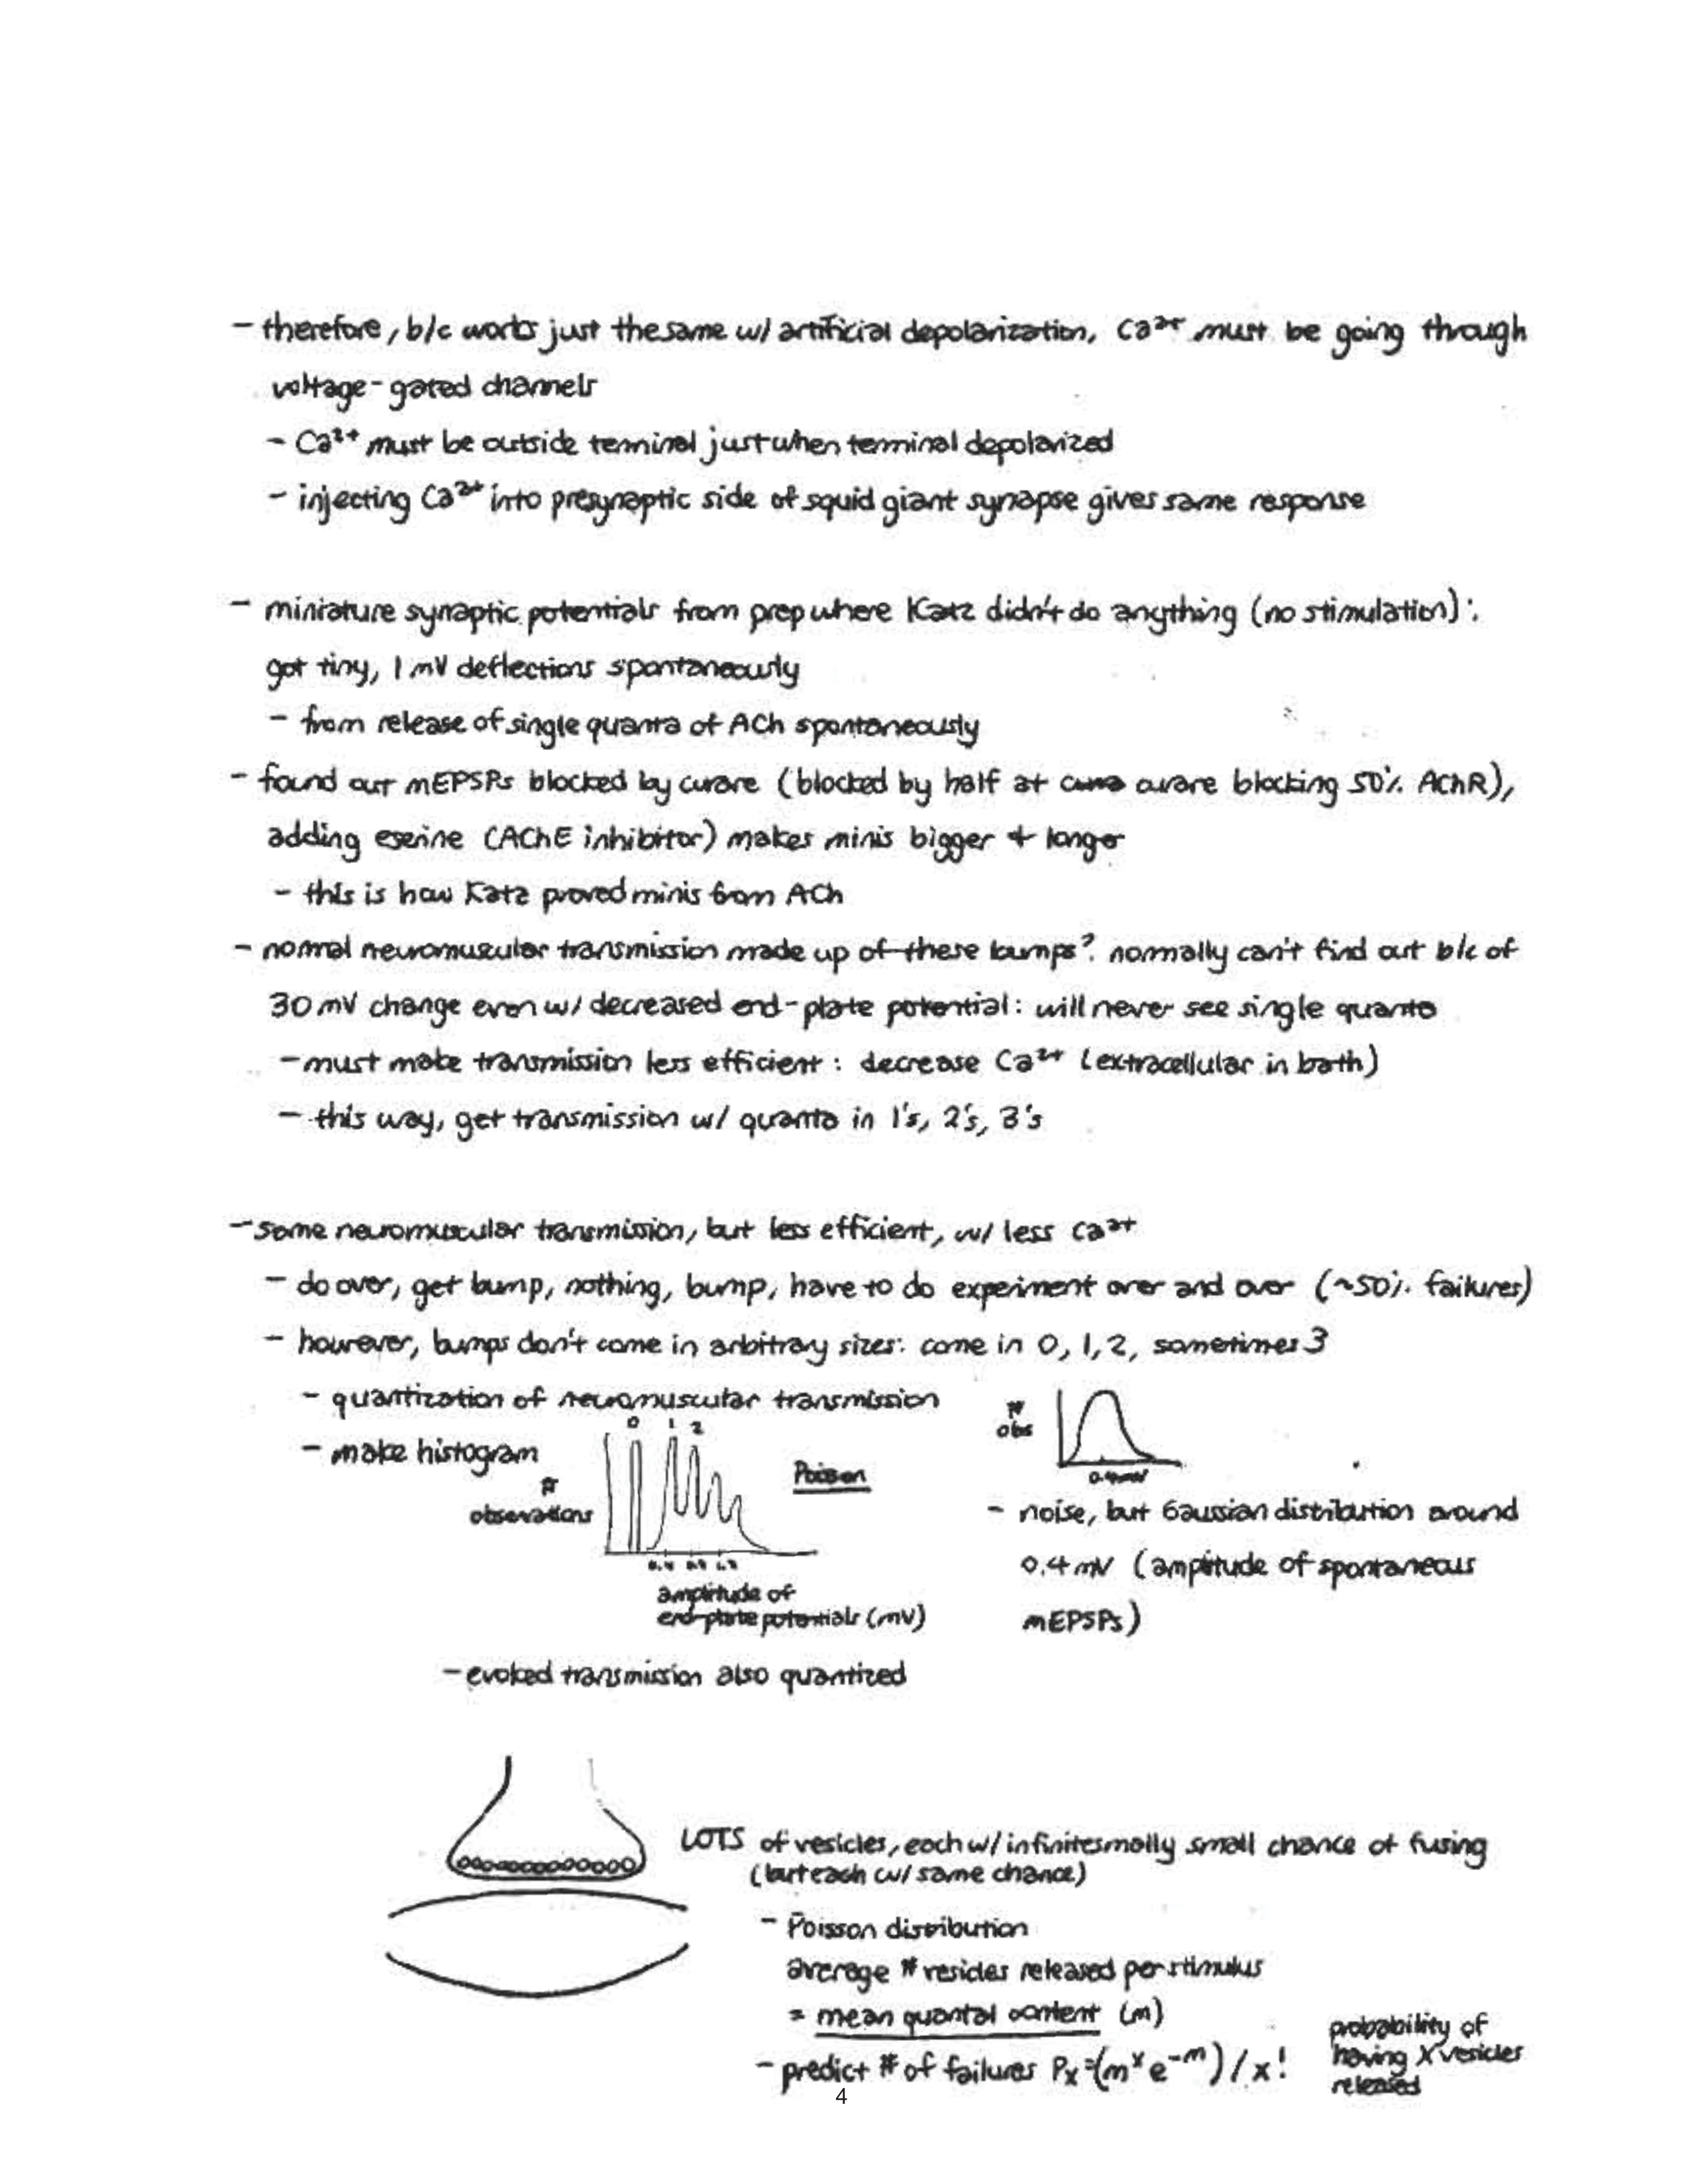 - therefore, b/c works just the same w/ artificial depolarization, Ca²⁺ must be going through
voltage-gated channels
- Ca²⁺ must be outside terminal just when terminal depolarized
- injecting Ca²⁺ into presynaptic side of squid giant synapse gives same response
- miniature synaptic potentials from prep where Katz didn't do anything (no stimulation):
got tiny, 1 mV deflections spontaneously
- from release of single quanta of ACh spontaneously
- found out mEPSPs blocked by curare (blocked by half at curare blocking 50% AChR),
adding eserine (AChE inhibitor) makes minis bigger + longer
- this is how Katz proved minis from ACh
- normal neuromuscular transmission made up of these bumps? normally can't find out b/c of
30 mV change even w/ decreased end-plate potential: will never see single quanta
- must make transmission less efficient: decrease Ca²⁺ (extracellular in bath)
- this way, get transmission w/ quanta in 1's, 2's, 3's
- same neuromuscular transmission, but less efficient, w/ less Ca²⁺
- do over, get bump, nothing, bump, have to do experiment over and over (~50% failures)
- however, bumps don't come in arbitrary sizes: come in 0, 1, 2, sometimes 3
- quantization of neuromuscular transmission
- make histogram
0 1 2
#
observations
0.4 0.8 1.2
amplitude of
end-plate potentials (mV)
Poisson
#
obs
0.4mV
- noise, but Gaussian distribution around
0.4 mV (amplitude of spontaneous
mEPSPs)
- evoked transmission also quantized
LOTS of vesicles, each w/ infinitesmally small chance of fusing
(but each w/ same chance)
- Poisson distribution
average # vesicles released per stimulus
= mean quantal content (m)
- predict # of failures Pₓ=(mˣe⁻ᵐ)/x!
probability of
having X vesicles
released
4